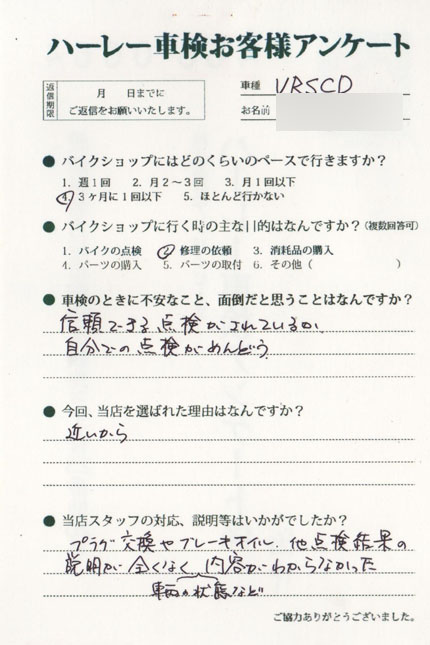 ハーレー車検お客様アンケート
返信期限
月　　日までに
ご返信をお願いいたします。
車種 VRSCD
お名前
● バイクショップにはどのくらいのペースで行きますか？
1. 週1回　2. 月2～3回　3. 月1回以下
4. 3ヶ月に1回以下　5. ほとんど行かない
● バイクショップに行く時の主な目的はなんですか？（複数回答可）
1. バイクの点検　2. 修理の依頼　3. 消耗品の購入
4. パーツの購入　5. パーツの取付　6. その他（　　　　　）
● 車検のときに不安なこと、面倒だと思うことはなんですか？
信頼できる点検がされているか、
自分での点検がめんどう
● 今回、当店を選ばれた理由はなんですか？
近いから
● 当店スタッフの対応、説明等はいかがでしたか？
プラグ交換やブレーキオイル、他点検結果の
説明が全くなく、内容がわからなかった
車両の状態など
ご協力ありがとうございました。